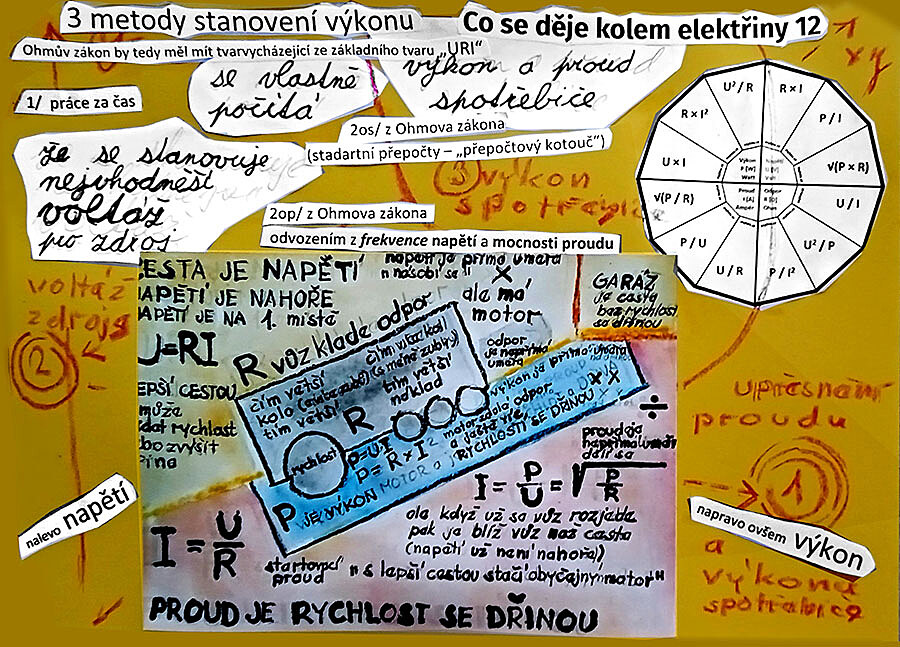 3 metody stanovení výkonu
Co se děje kolem elektřiny 12
Ohmův zákon by tedy měl mít tvarvycházející ze základního tvaru „URI“
se vlastně
počítá
výkon a proud
spotřebiče
xy
1/ práce za čas
2os/ z Ohmova zákona
(stadartní přepočty – „přepočtový kotouč“)
že se stanovuje
nejvhodnější
voltáž
pro zdroj
3 výkon
spotřebiče
2op/ z Ohmova zákona
odvozením z frekvence napětí a mocnosti proudu
U²/R
R×I
P/I
√(P×R)
U/I
U²/P
P/I²
U/R
P/U
√(P/R)
U×I
R×I²
Výkon
P [W]
Watt
Napětí
U [V]
Volt
Proud
I [A]
Ampér
Odpor
R [Ω]
Ohm
voltáž
zdroje
2
CESTA JE NAPĚTÍ
NAPĚTÍ JE NAHOŘE
NAPĚTÍ JE NA 1. místě
U=RI
napětí je přímá úměra
násobí se
×
ale má
motor
GARÁŽ
je cesta
bez rychlosti
se dřinou
odpor
je nepřímá
úměra
R vůz klade odpor
čím větší
kolo
tím větší
čím více kol
tím větší
náklad
R
rychlost
P=U·I
P=R×I²
P JE VÝKON MOTOR a RYCHLOSTI SE DŘINOU ××
výkon je přímá úměra
LEPŠÍ CESTOU
může
rychlost
zvýšit
÷
proud je
nepřímá úměra
dělí se
I = P/U = √P/R
I = U/R
startovací
proud
ale když už se vůz rozjede
pak je blíž vůz než cesta
(napětí už není nahoře)
s lepší cestou stačí obyčejný motor"
PROUD JE RYCHLOST SE DŘINOU
nalevo napětí
upřesnění
proudu
1
napravo ovšem výkon
a
výkonu
spotřebiče